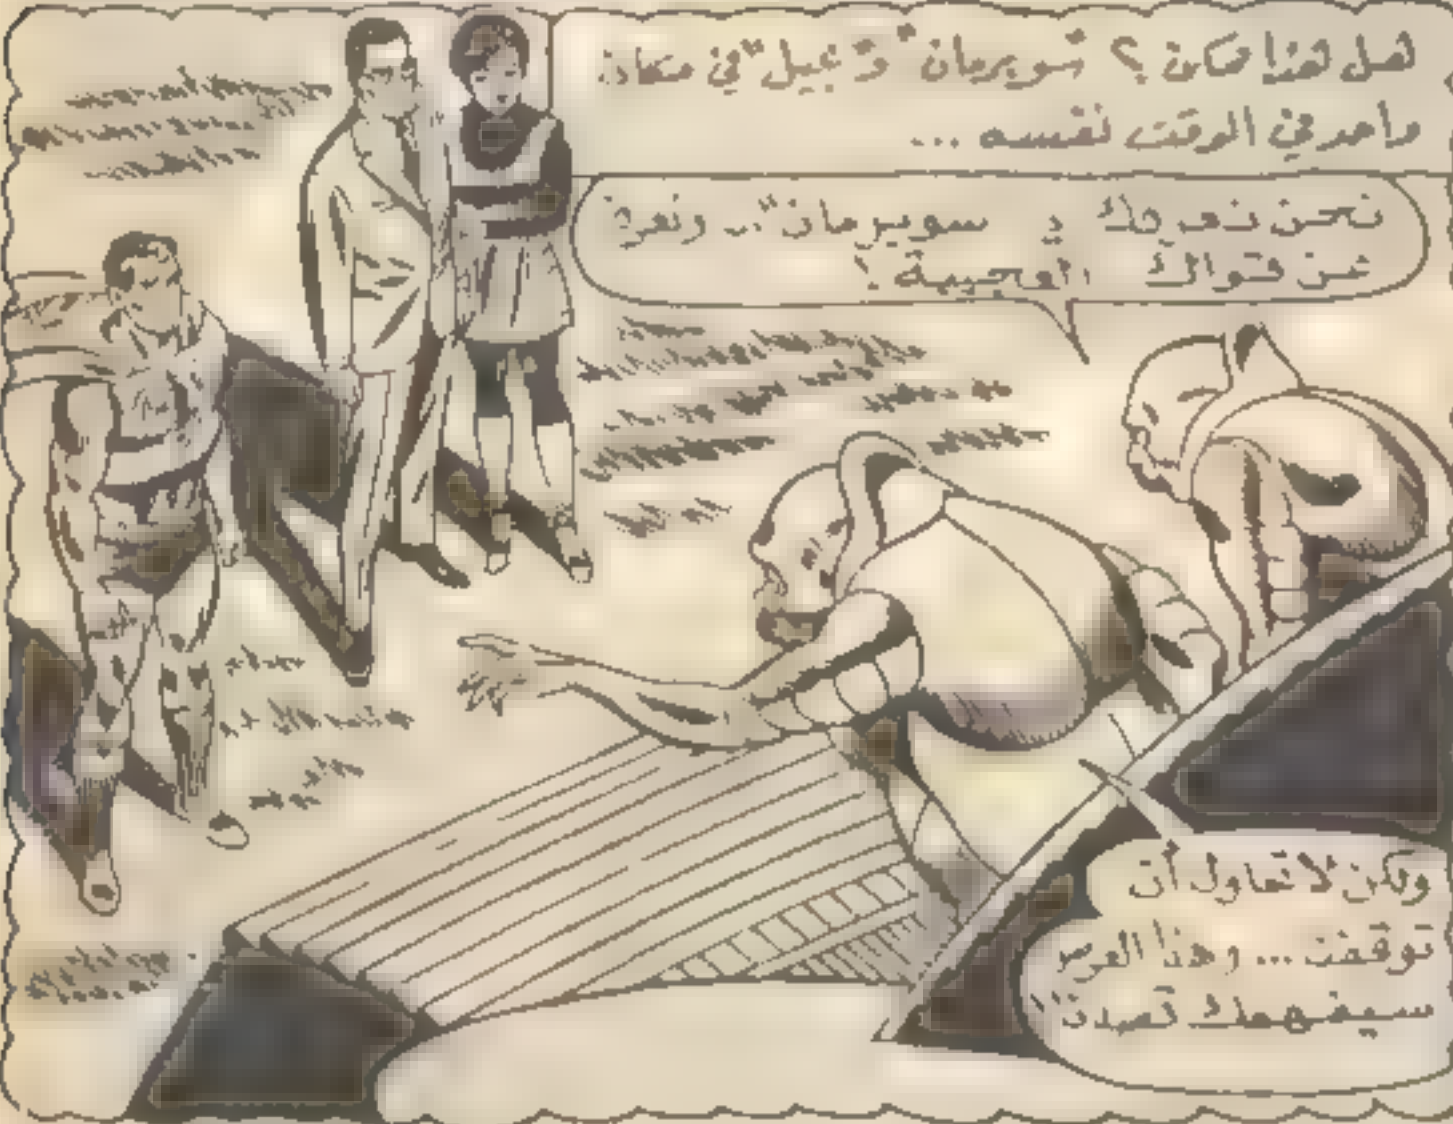 هل هذا ممكن ؟ "سوبرمان" و "نبيل" في مكان
واحد في الوقت نفسه ...
نحن نعرفك يا "سوبرمان" .. ونعرف
عن قواك العجيبة !
ولكن لا تحاول أن
توقفنا ... وهذا العرض
سيفهمك قصدنا !